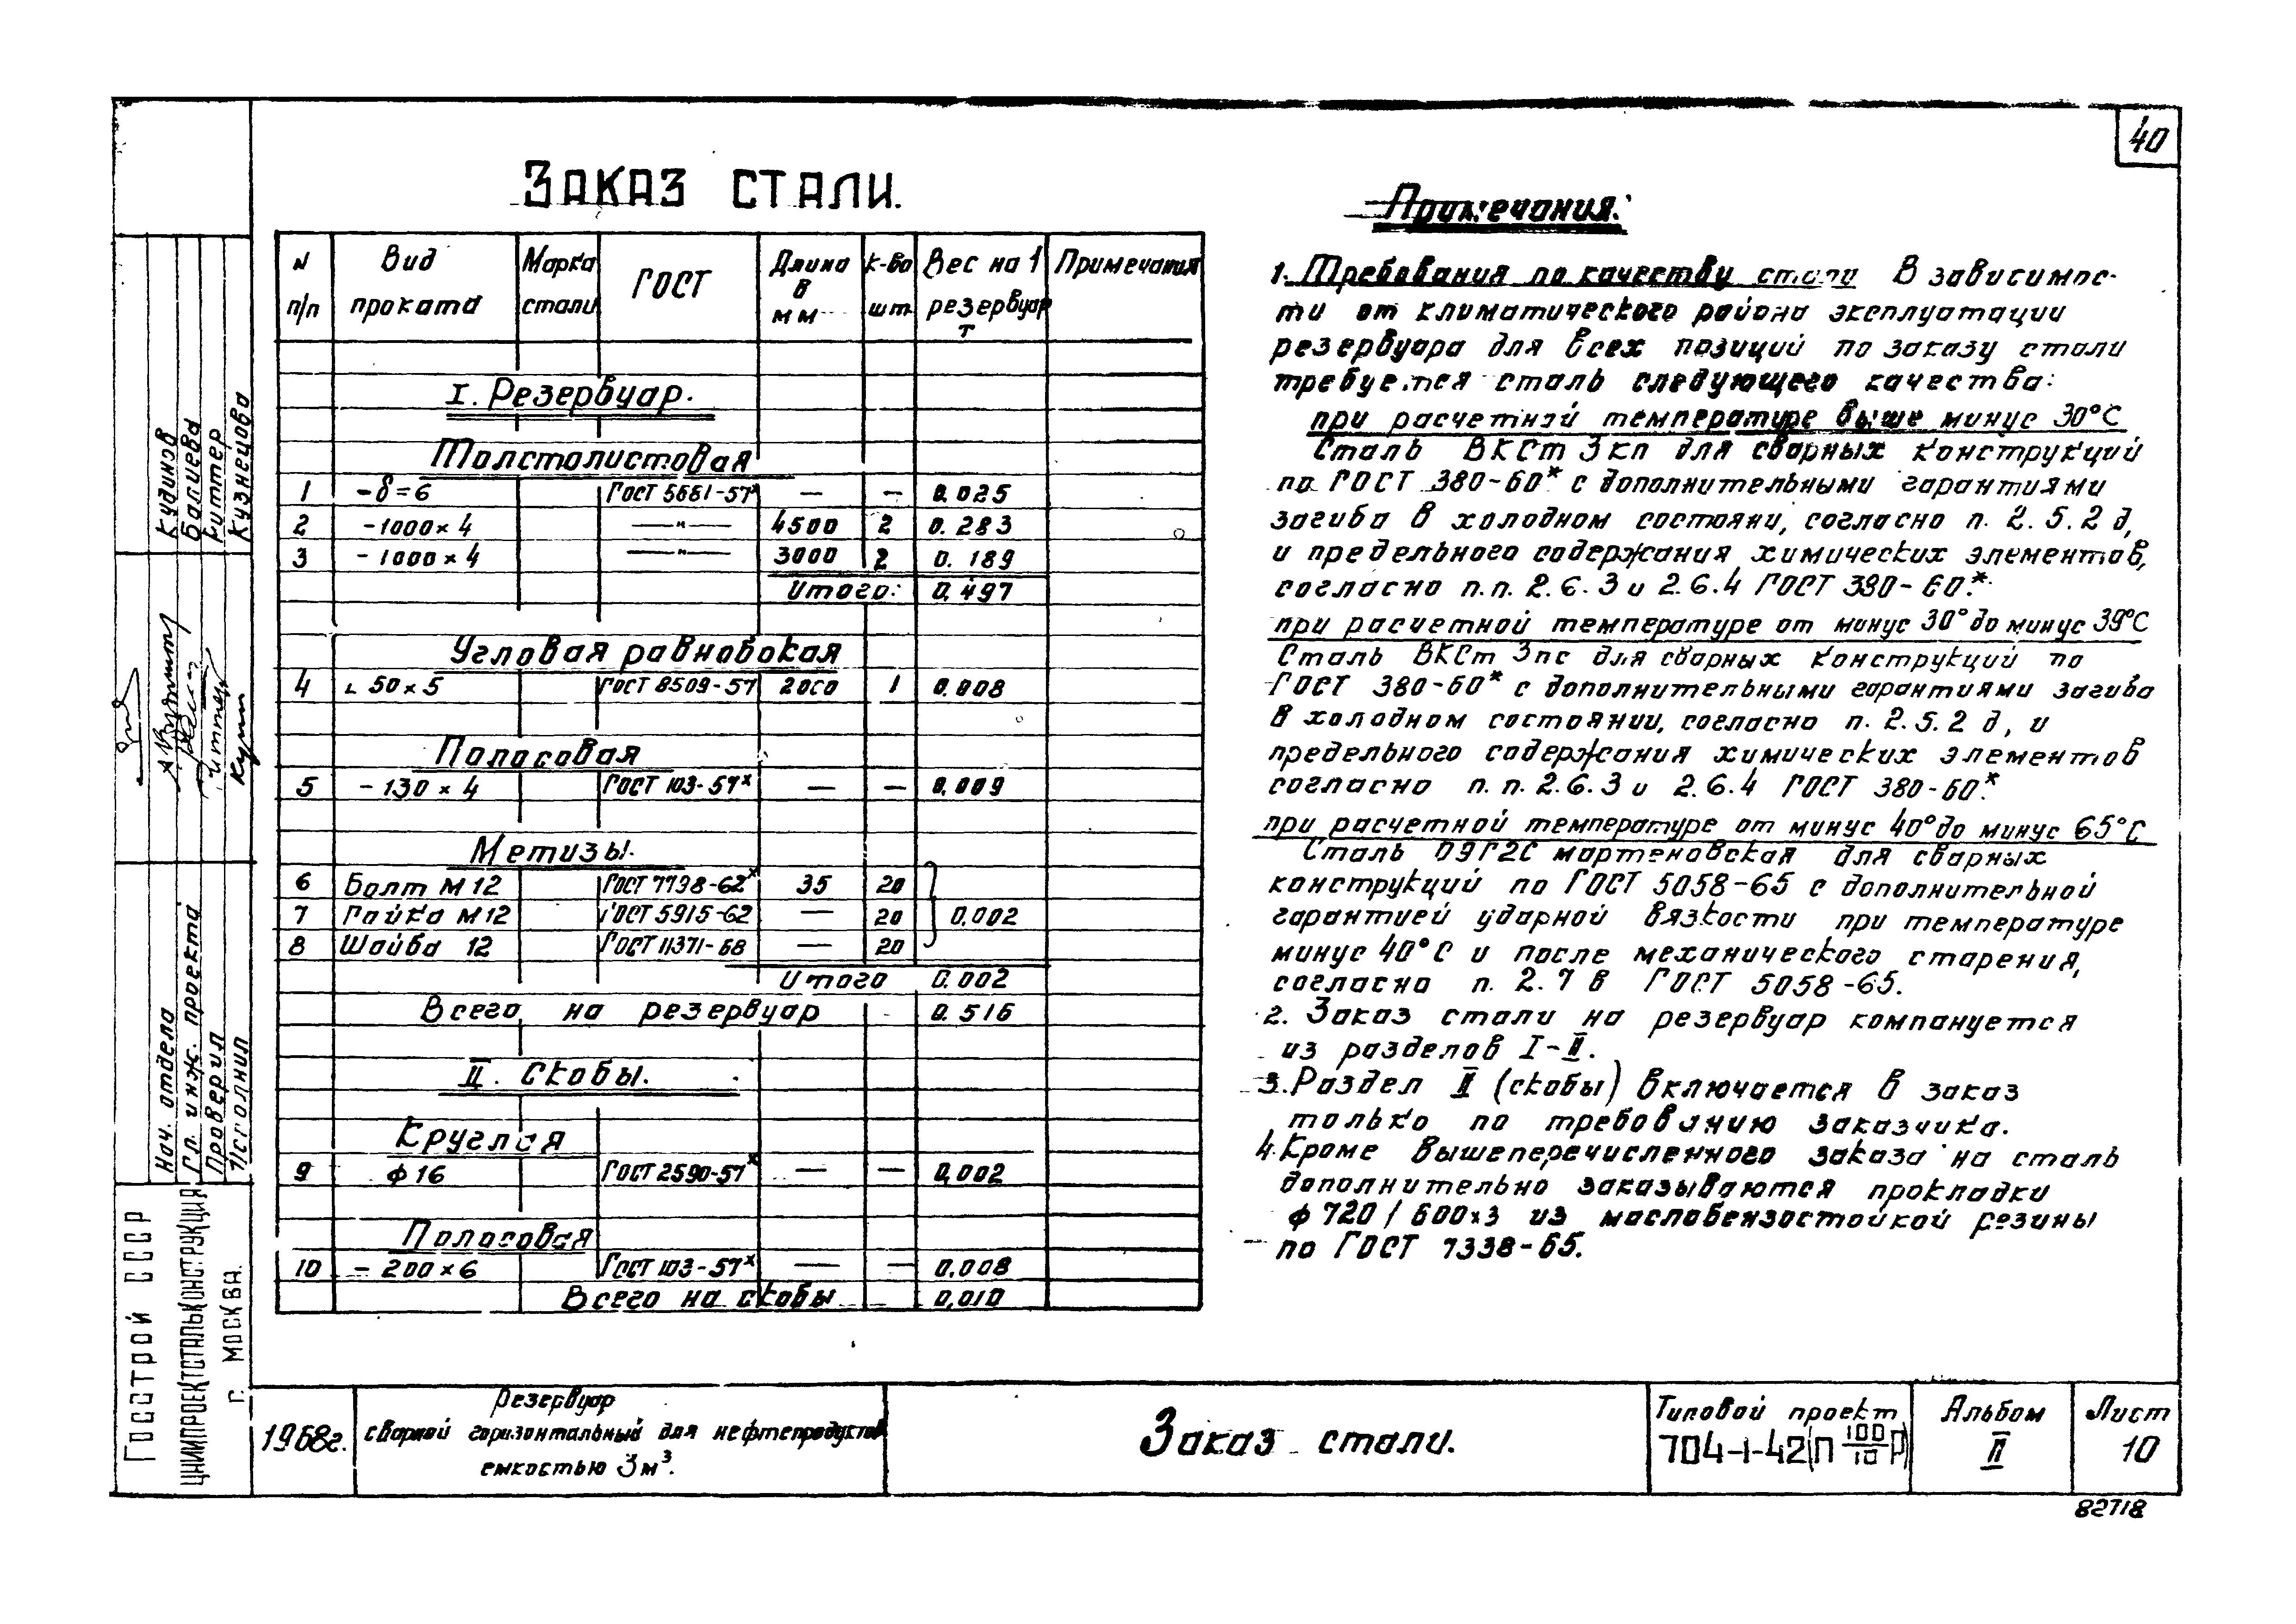 40
Заказ стали.
N п/п | Вид проката | Марка стали | ГОСТ | Длина в мм | к-во шт | Вес на 1 резервуар т | Примечания
I. Резервуар.
Толстолистовая
1 | -δ=6 | ГОСТ 5681-57* | — | — | 0.025
2 | -1000×4 | —"— | 4500 | 2 | 0.283
3 | -1000×4 | —"— | 3000 | 2 | 0.189
Итого: 0.497
Угловая равнобокая
4 | ∟ 50×5 | ГОСТ 8509-57 | 2000 | 1 | 0.008
Полосовая
5 | -130×4 | ГОСТ 103-57* | — | — | 0.009
Метизы.
6 | Болт М12 | ГОСТ 7798-62* | 35 | 20
7 | Гайка М12 | ГОСТ 5915-62 | — | 20 | 0.002
8 | Шайба 12 | ГОСТ 11371-68 | — | 20
Итого 0.002
Всего на резервуар 0.516
II. Скобы.
Круглая
9 | ф16 | ГОСТ 2590-57* | — | — | 0,002
Полосовая
10 | -200×6 | ГОСТ 103-57* | — | — | 0.008
Всего на скобы 0,010
Примечания:
1. Требования по качеству стали В зависимос-
ти от климатического района эксплуатации
резервуара для всех позиций по заказу стали
требуется сталь следующего качества:
при расчетной температуре выше минус 30°С
Сталь ВКСт 3кп для сварных конструкций
по ГОСТ 380-60* с дополнительными гарантиями
загиба в холодном состояни, согласно п. 2.5.2д,
и предельного содержания химических элементов,
согласно п.п. 2.6.3 и 2.6.4 ГОСТ 380-60*.
при расчетной температуре от минус 30° до минус 39°С
Сталь ВКСт 3пс для сварных конструкций по
ГОСТ 380-60* с дополнительными гарантиями загиба
в холодном состоянии, согласно п. 2.5.2 д, и
предельного содержания химических элементов
согласно п.п. 2.6.3 и 2.6.4 ГОСТ 380-60*.
при расчетной температуре от минус 40° до минус 65°С
Сталь 09Г2С мартеновская для сварных
конструкций по ГОСТ 5058-65 с дополнительной
гарантией ударной вязкости при температуре
минус 40°С и после механического старения,
согласно п. 2.7в ГОСТ 5058-65.
2. Заказ стали на резервуар компануется
из разделов I-II.
3. Раздел II (скобы) включается в заказ
только по требованию заказчика.
4. Кроме вышеперечисленного заказа на сталь
дополнительно заказываются прокладки
ф 720/600×3 из маслобензостойкой резины
по ГОСТ 7338-65.
Кудинов
Валиева
Риттер
Кузнецова
Нач. отдела
Гл. инж. проекта
Проверил
Исполнил
Госстрой СССР
ЦНИИПРОЕКТСТАЛЬКОНСТРУКЦИЯ
г. Москва.
1968г.
Резервуар
сварной горизонтальный для нефтепродуктов
емкостью 3м³.
Заказ стали.
Типовой проект
704-1-42(П 100/10 Р)
Альбом
II
Лист
10
82718